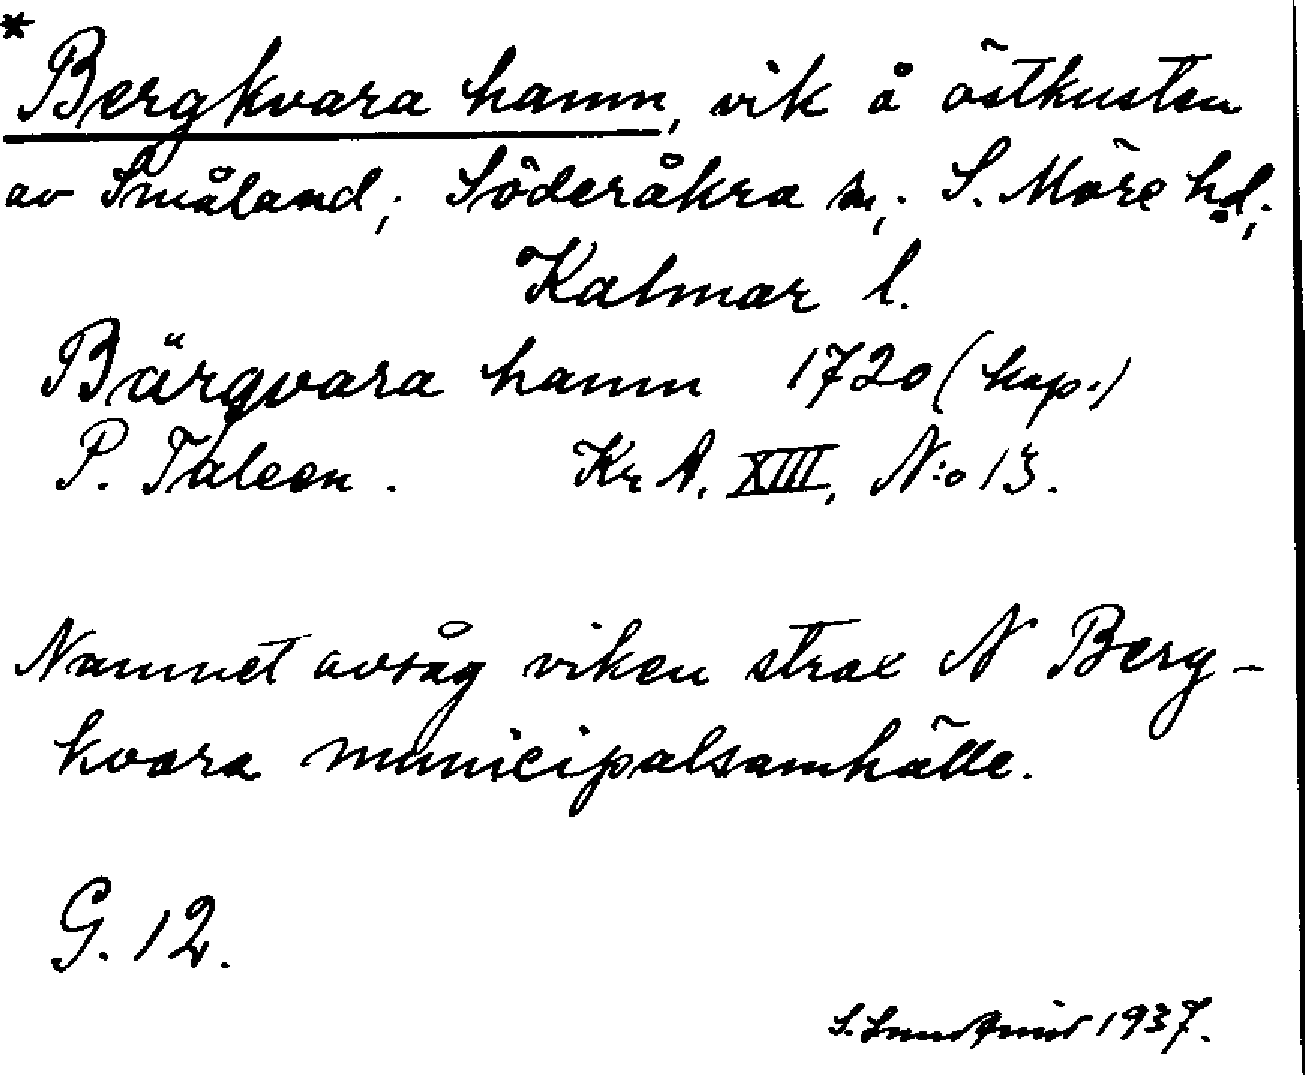 * Bergkvara hamn, vik å östkusten
av Småland; Söderåkra sn; S. Möre hd;
Kalmar l.
Bärgvara hamn 1720 (kop.)
P. Taleen. Kr A. XIII, N:o 13.
Namnet avsåg viken strax N Berg-
kvara municipalsamhälle.
G. 12.
S. 1937.